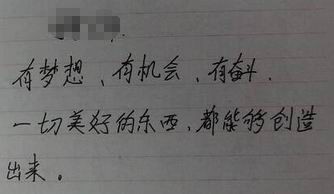 有梦想、有机会、有奋斗.
一切美好的东西，都能够创造
出来。